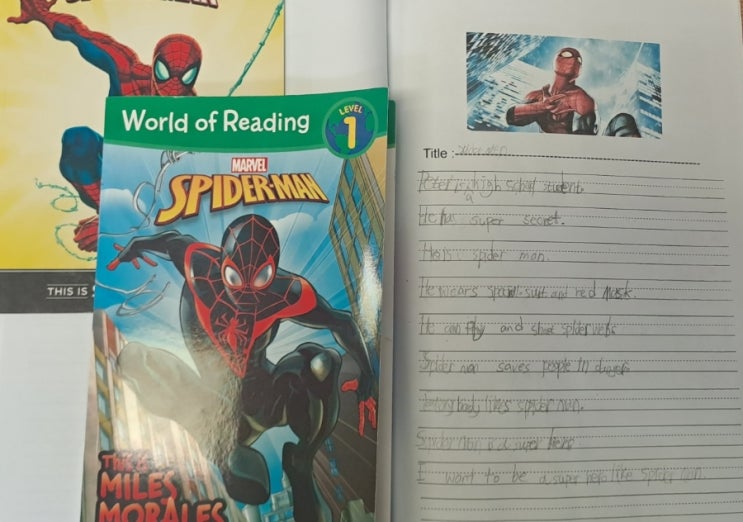 THIS IS
World of Reading
LEVEL
1
MARVEL
SPIDER-MAN
This is
MILES
MORALES
Title : spider man
Peter is a high school student.
He has super secret.
He is spider man.
He wears special suit and red mask.
He can fly and shoot spider webs
Spider man saves people in danger
Everybody likes spider man.
Spider man is a super hero
I want to be a super hero like spider man.